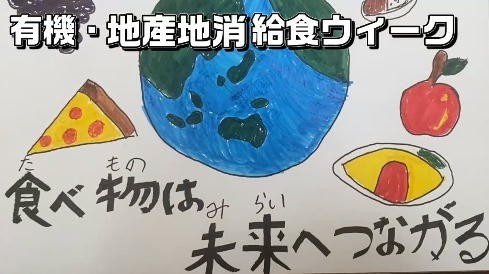 有機・地産地消 給食ウィーク
食べ物は
た もの
未来へつながる
み らい